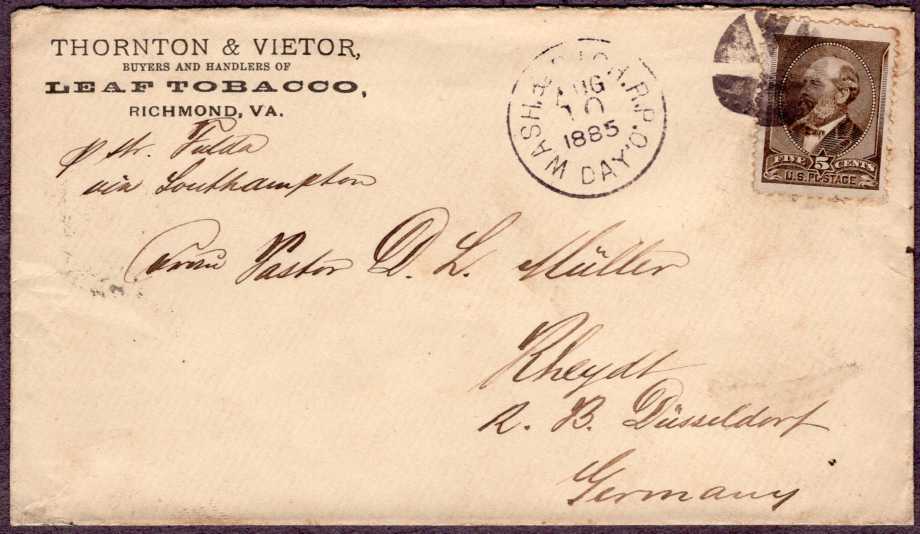 THORNTON & VIETOR,
BUYERS AND HANDLERS OF
LEAF TOBACCO,
RICHMOND, VA.
p str. Fulda
via Southampton
WASH. & RICH. R.P.O.
AUG
10
1885
DAY
FIVE 5 CENTS
U.S. POSTAGE
Frau Pastor D. L. Müller
Rheydt
R. B. Düsseldorf
Germany